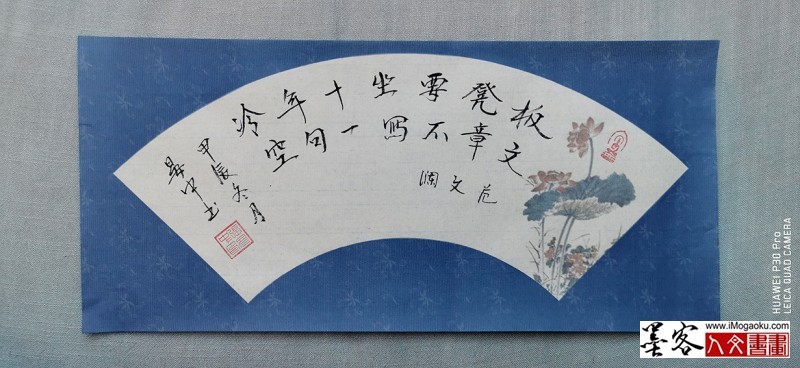 板凳要坐十年冷
文章不写一句空
范文澜
甲辰冬月
中书
HUAWEI P30 Pro
LEICA QUAD CAMERA
www.iMogaoku.com
墨客人文書畫